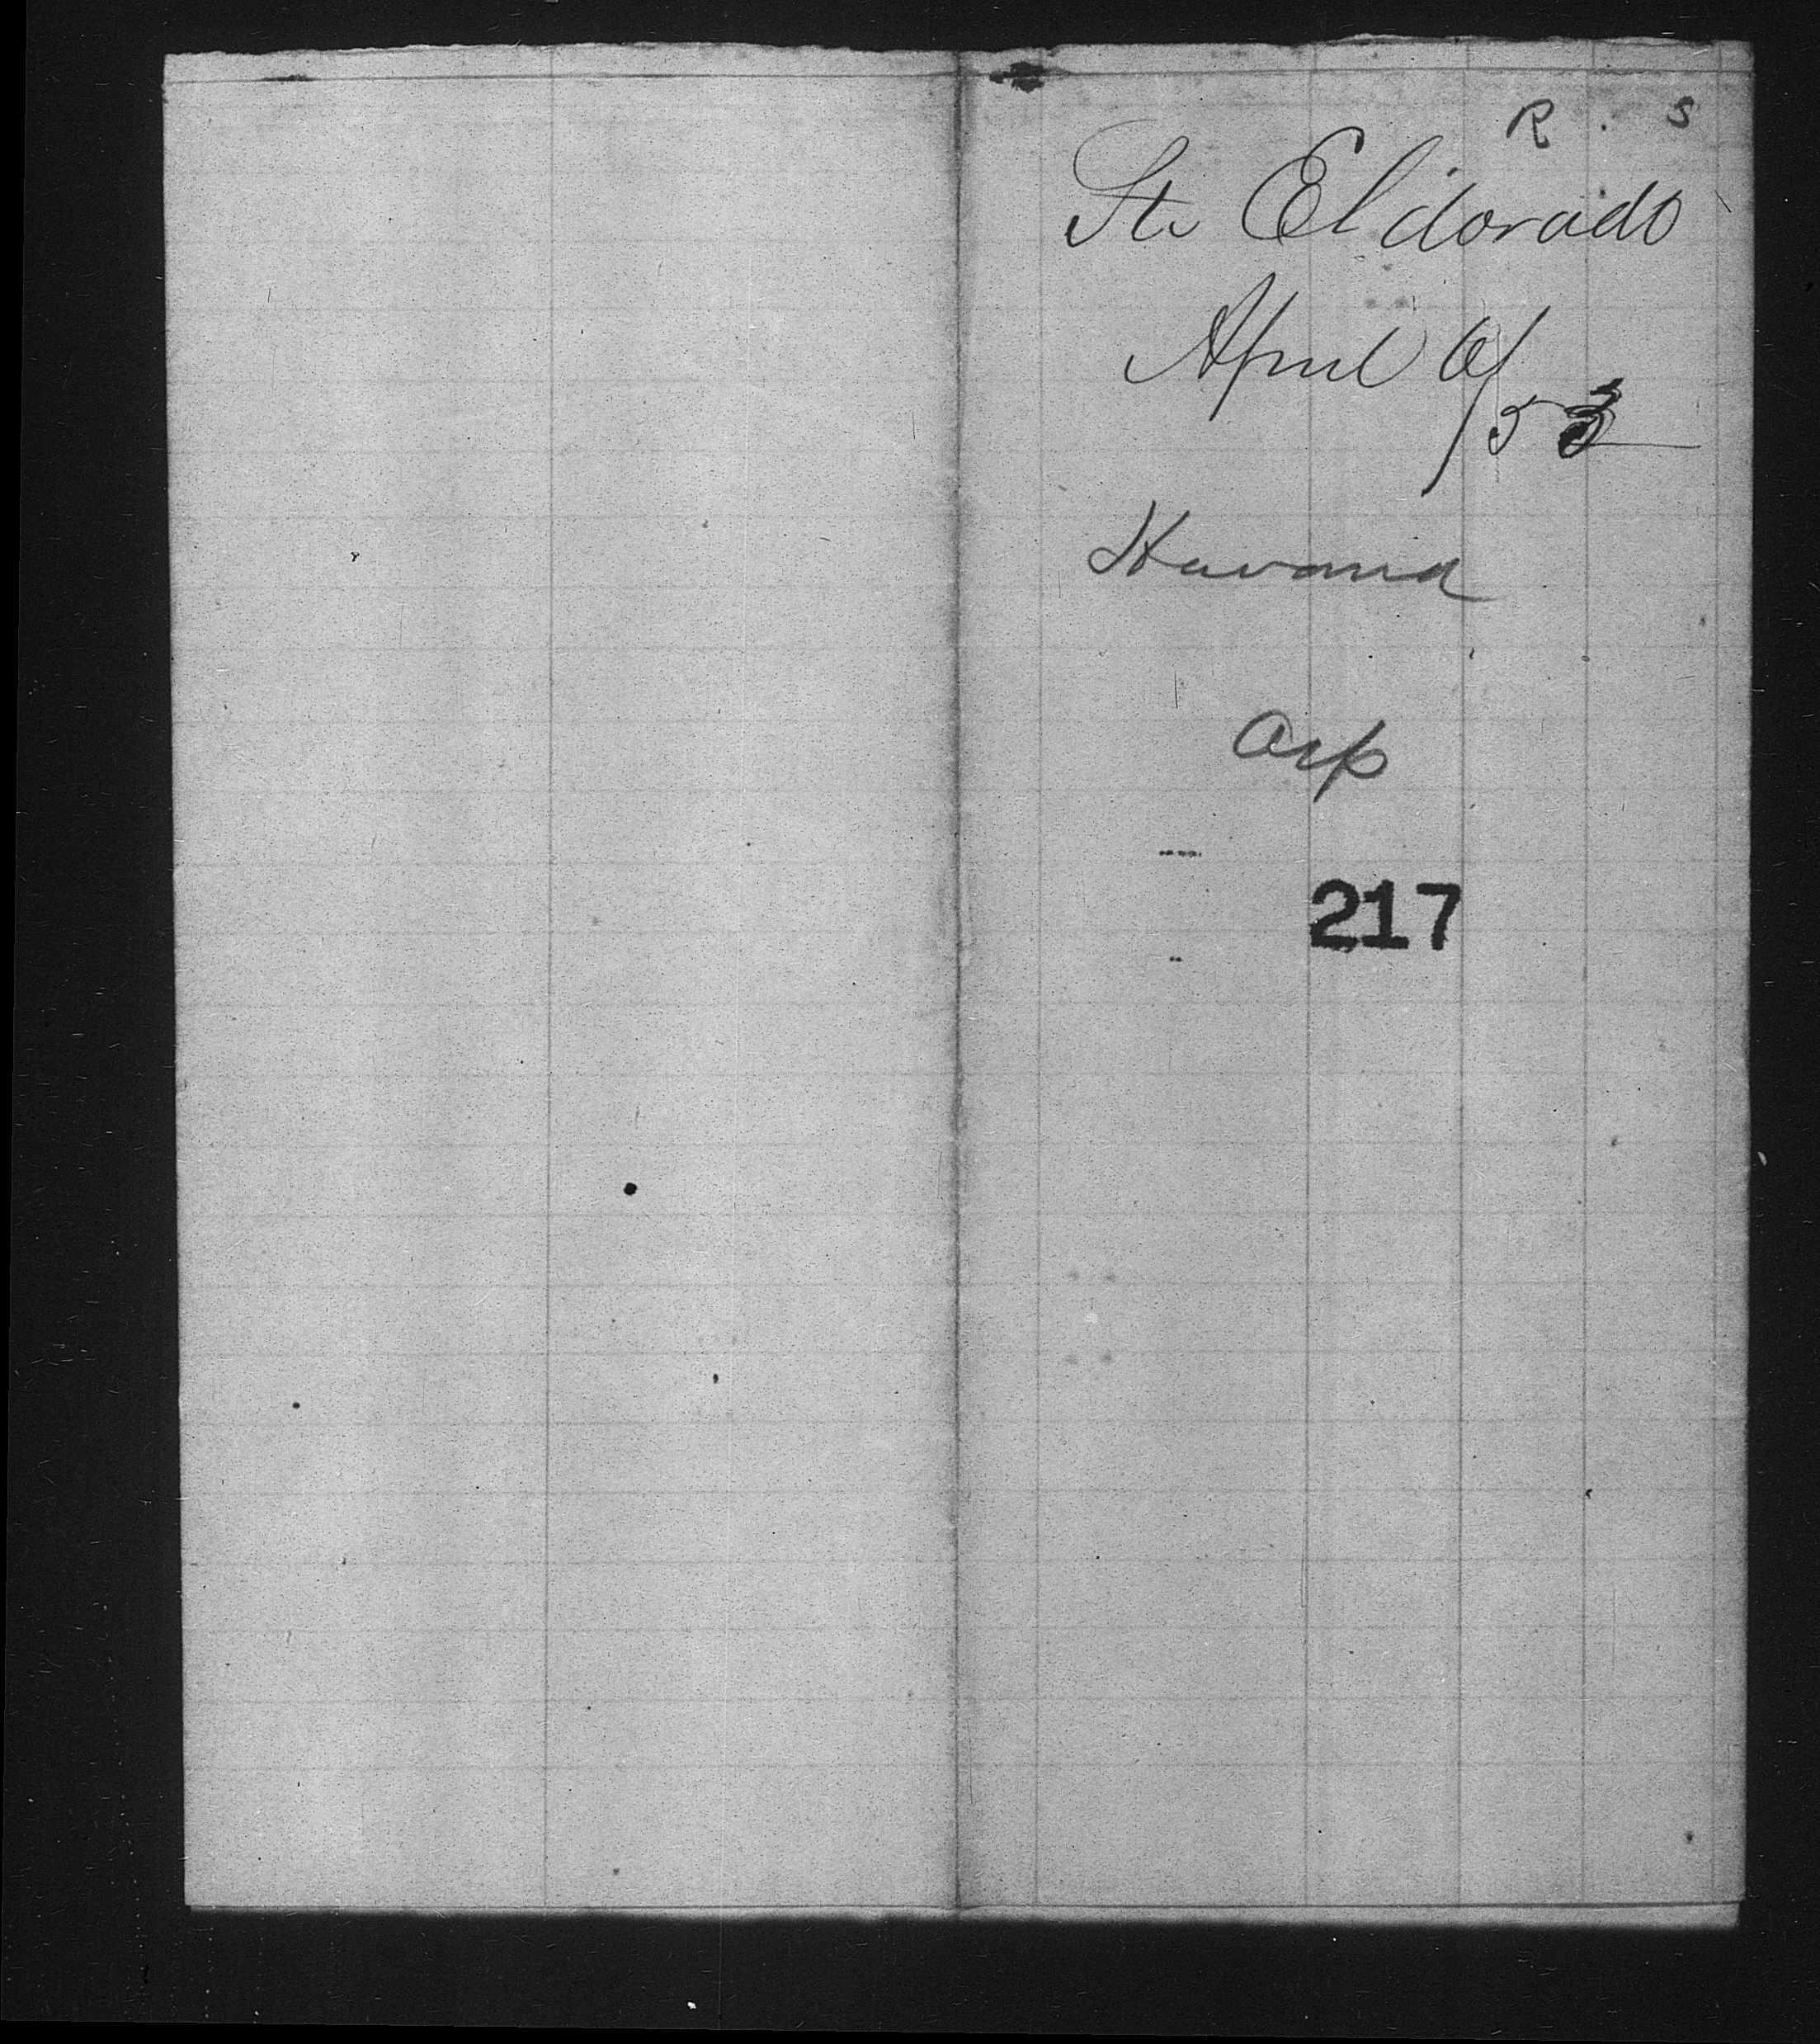 R . S
Str Eldorado
April 6/53
Havana
Asp
217